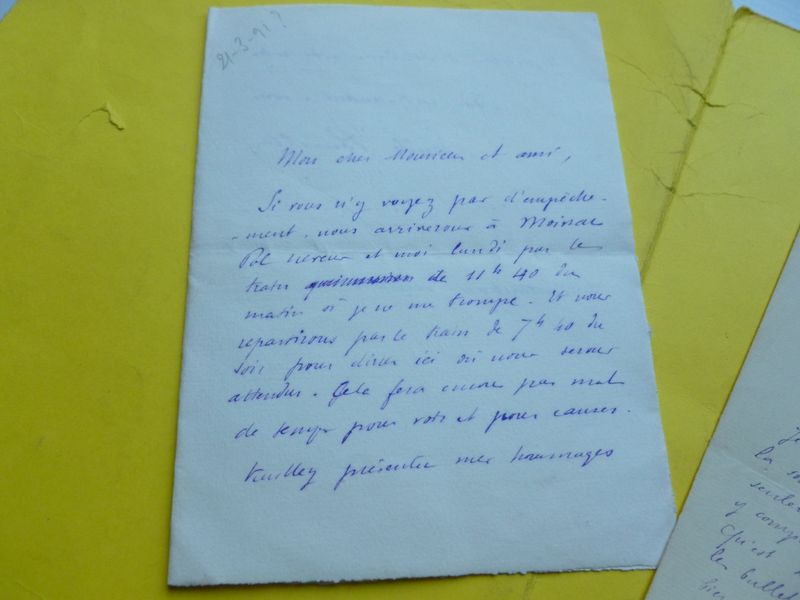 21-3-91?
Mon cher Monsieur et ami,
Si vous n'y voyez pas d'empêche-
-ment, nous arriverons à Moissac
Pol Neveux et moi lundi par le
train de 11h 40 du
matin si je ne me trompe. Et nous
repartirons par le train de 7h 40 du
soir pour diner ici où nous serons
attendus. Cela fera encore pas mal
de temps pour voir et pour causer.
Veuillez présenter mes hommages
Je
la
seule
y comp
Qu'est
les bullet
bien